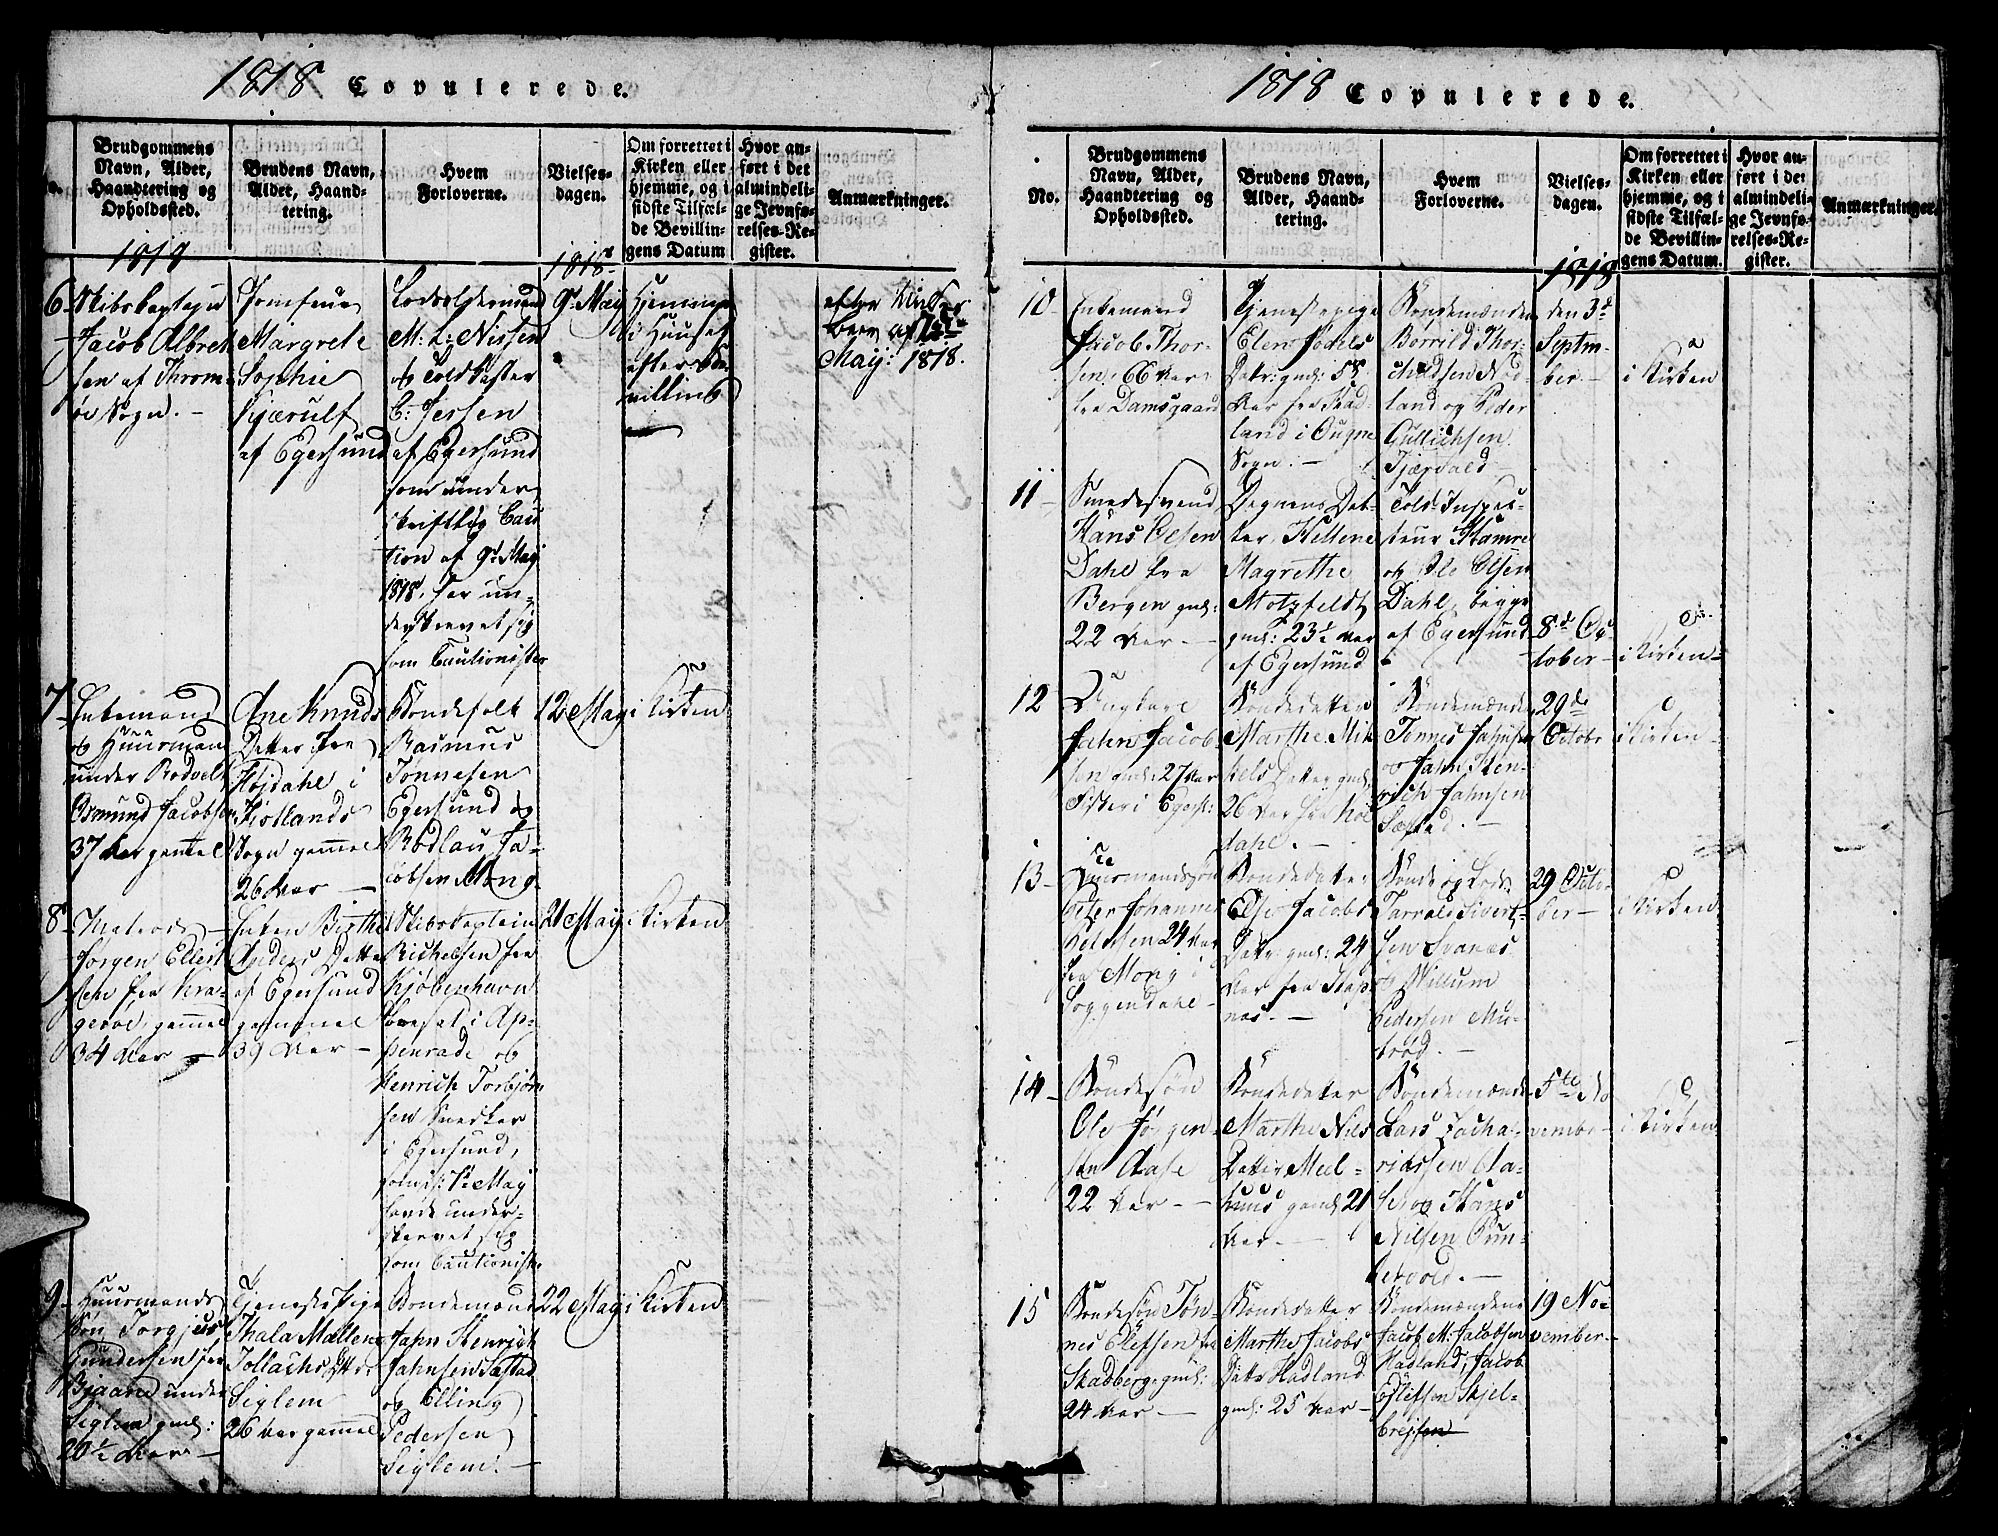 1818 Copulerede.
No.
Brudgommens
Navn, Alder,
Haandtering og
Opholdssted.
Brudens Navn,
Alder, Haand-
tering.
Hvem
Forloverne.
Vielses-
dagen.
Om forrettet i
Kirken eller
hjemme, og i
sidste Tilfæl-
de Bevillin-
gens Datum
Hvor an-
ført i det
almindeli-
ge Jevnfø-
relses-Re-
gister.
Anmærkninger.
1818
1818
6
Skibskaptejn
Jacob Albret
sen af Throm-
øe Sogn. -
Jomfrue
Margrete
Sophie
af Egersund
Lodsoldermand
M: L: Nissen
og Toldkasser
C: Jessen
af Egersund
som under
skriftlig Cau
tion af 9d May
1818, har un-
derskrevet sig
som Cautionister
9d May
Hjemme
i Huuset
efter Be
villing
efter
May: 1818.
7
Enkemand
og Huusmand
under Rodvelt
Osmund Jacobsen
37 Aar gammel
Ane Knuds
Datter fra
Højdahl i
Sogn gammel
26 Aar -
Bondefolk
Rasmus
Tønnesen
Egersund og
Rodlau Ja-
cobsen Mong.
12 May
i Kirken
8
Matros -
Jørgen Ellert
sen fra Kra-
gerøe, gammel
34 Aar -
Enken Birthe
Anders Datte
af Egersund
gammel
39 Aar -
Skibskaptein
Richelsen fra
Kjøbenhavn
i Ap-
penrade og
Henrich Torbjørn
sen Snedker
i Egersund,
May
havde under-
skrevet sig
som Cautioniste
21 May
i Kirken
9
Huusmands
Søn Torgjus
Gundersen fra
Bjaaren under
Siglem gml:
20½ Aar -
Tjenestepige
Thala Mallene
Tollachs Dttr
Siglem
26 Aar gammel
Bondemænd
Jahn Henrich
Jahnsen Sæstad
og Elling
Pedersen
Siglem. -
22 May
i Kirken
1818 Copulerede.
No.
Brudgommens
Navn, Alder,
Haandtering og
Opholdssted.
Brudens Navn,
Alder, Haand-
tering.
Hvem
Forloverne.
Vielses-
dagen.
Om forrettet i
Kirken eller
hjemme, og i
sidste Tilfæl-
de Bevillin-
gens Datum.
Hvor an-
ført i det
almindeli-
ge Jevnfø-
relses-Re-
gister.
Anmærkninger.
1818
10
Enkemand
Jacob Thor-
sen, 66 Aar
fra Damsgaard
Tjenestepige
Elen
Datr: gml: 55
Aar fra Skad-
land i Ougne
Sogn. -
Bondemænden
Borrild Thor-
Nod-
land og Peder
Gullichsen
Tjærvald -
den 3d
Septm-
ber. -
i Kirken
11
Smedesvend
Hans Olsen
Dahl fra
Bergen gml:
22 Aar -
Degnens Dat-
ter Hellene
Magrethe
Motzfeldt
gml: 23½ Aar
af Egersund
Told-Inspec-
teur Stamre
og Ole Olsen
Dahl, begge
af Egersund
8d Oc-
tober -
i Kirken
12
Ungkarl
Jahn Jacob-
sen gml: 27 Aar
Bondedatter
Marthe Mik
kels Datter gml
26 Aar fra Høi
dahl. -
Bondemænden
Tønnes Jahnsen
og Jahn Hen-
rich Jahnsen
Sæstad. -
29de
Octobr
i Kirken
13
Huusmandssøn
Peter Johannes
Petersen 24 Aar
fra Mong i
Soggendahl -
Bondedatter
Else Jacobs
Datr: gml: 24
Aar fra Stap-
næs. -
Bonde og Lods
Tarrald Sivert-
sen Svanæs
og Willum
Pedersen Mu-
brød. -
29 Octo-
ber -
i Kirken
14
Bondesøn
Ole Jørgen-
sen Aase
22 Aar -
Bondedatter
Marthe Nils
Datter Meel-
huus gaml 21
Aar -
Bondemænde
Lars Zacha-
riassen Aa-
se og Hans
Nilsen Pun-
tervold. -
5te No
vember -
i Kirken
15
Bondesøn Tøn-
nes Elefsen fra
Skadberg gml:
24 Aar -
Bondedatter
Marthe Jacobs
Datr Hadland
gml: 25 Aar -
Bondemændene
Jacob M: Jacobsen
Hadland, Jacob
Eslefsen Skjel-
brejsen
19 No-
vember -